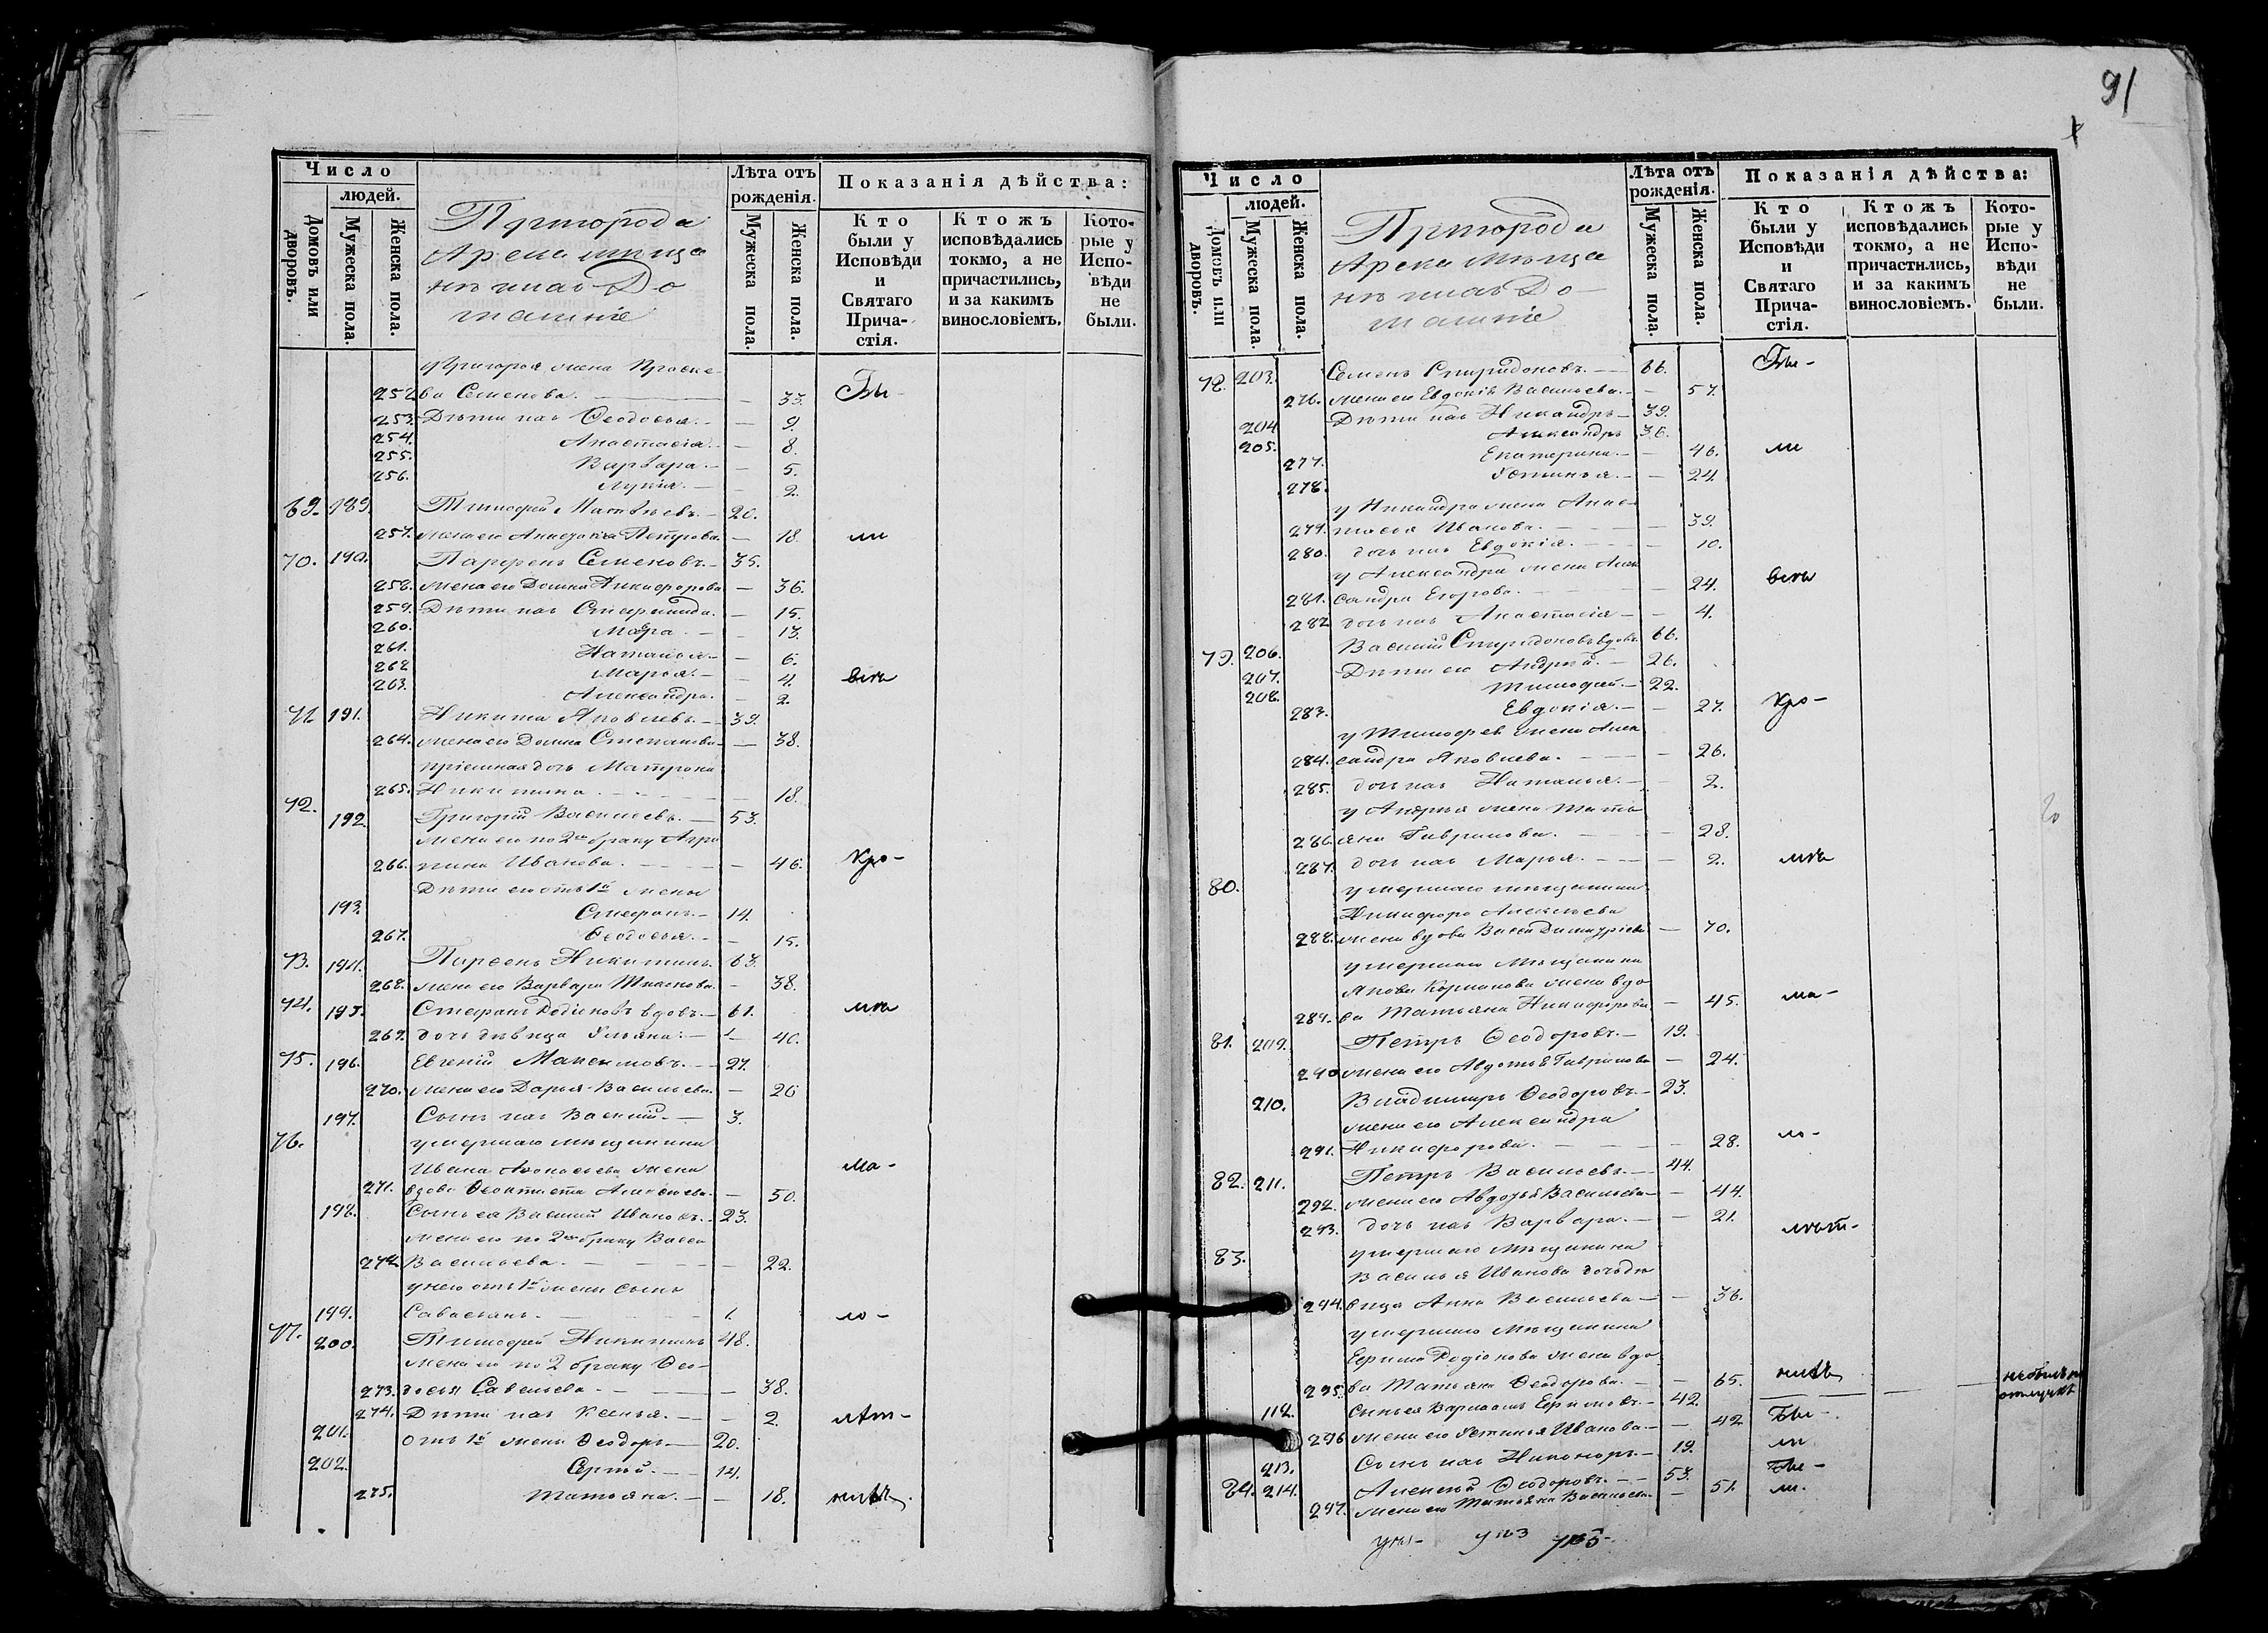 91
Число
людей.
Домовъ или дворовъ.
Мужеска пола.
Женска пола.
Пригорода
Арска мѣща
нѣ и ихъ До
машніе
Лѣта отъ
рожденія.
Мужеска пола.
Женска пола.
Показанія дѣйства:
Кто были у Исповѣди и Святаго Прича-стія.
Ктожъ исповѣдались токмо, а не причастились, и за какимъ винословіемъ.
Кото-рые у Испо-вѣди не были.
у Григорья жена Праске
252. ва Семенова. — — 33. Бы-
253. Дѣти ихъ Ѳеодосья. — — 9.
254. Анастасія. — — 8.
255. Варвара. — — 5.
256. Лукія. — — 2.
69. 189. Тимофей Матвѣевъ. — 20.
257. жена его Петрова. — 18. ли
70. 190. Парфенъ Семеновъ. — 35.
258. жена его Домна Никифорова — 36.
259. Дѣти ихъ Стефанида. — 15.
260. Мавра. — — 13.
261. Наталья. — — 6.
262. Марья. — — 4. всѣ
263. Александра. — 2.
71. 191. Никита Яковлевъ. — 39.
264. жена его Домна Степанова — 38.
пріемная дочь Матрона
265. Никитина. — — 18.
72. 192. Григорій Васильевъ. — 53.
жена его по 2му браку Агри
266. пина Иванова. — — 46. Кро-
Дѣти его отъ 1й жены
193. Стефанъ. — 14.
267. Ѳеодосья. — — 15.
73. 194. Парѳенъ Никитинъ. 63.
268. жена его Варвара — 38.
74. 195. Стефанъ Родіоновъ вдовъ. — 61. мѣ
269. дочь дѣвица Ульяна. — — 40.
75. 196. Евгеній Максимовъ. — 27.
270. жена его Дарья Васильева. — 26
197. Сынъ ихъ Василій. — 3.
76. умершаго мѣщанина
Ивана Аѳонасьева жена
271. вдова Ѳеоктиста Алексѣева. — 50. ма-
198. Сынъ ея Василій Ивановъ. — 23.
жена его по 2му браку Васса
272. Васильева. — — — 22.
у него отъ 1й жены сынъ
199. Савастьянъ. — — 1. ло-
77. 200. Тимофей Никитинъ 48.
жена его по 2 браку Ѳео-
273. досья Савельева. — — 38.
274. Дѣти ихъ Ксенья. — — 2. лѣт-
201. отъ 1й жены Ѳеодоръ. — 20.
202. Сергѣй. — — 14.
275. Татьяна. — — 18. нихъ.
Число
людей.
Домовъ или дворовъ.
Мужеска пола.
Женска пола.
Пригорода
Арска мѣща
нѣ и ихъ До-
машніе
Лѣта отъ
рожденія.
Мужеска пола.
Женска пола.
Показанія дѣйства:
Кто были у Исповѣди и Святаго Прича-стія.
Ктожъ исповѣдались токмо, а не причастились, и за какимъ винословіемъ.
Кото-рые у Испо-вѣди не были.
78. 203. Семенъ Спиридоновъ. — 66. Бы-
276. жена его Евдокія Васильева. — 57.
204. Дѣти ихъ Никандръ — 39.
205. Александръ 36.
277. Екатерина. — — 46. ли
278. Устинья. — — 24.
у Никандра жена Анас-
279. тасія Иванова. — — — 39.
280. дочь ихъ Евдокія. — — — 10.
у Александра жена Алек
281. сандра Егорова. — — — 24. всѣ
282 дочь ихъ Анастасія — — 4.
79. 206. Василій Спиридоновъ вдовъ. 66.
207. Дѣти его Андрей. — 26.
208. Тимофей. — 22.
283. Евдокія. — — 27. Кро-
у Тимофея жена Алек
284. сандра Яковлева. — — — 26.
285. дочь ихъ Наталья. — — 2.
у Андрея жена Тать
286. яна Гаврилова. — — — 28.
287. дочь ихъ Марья. — — — 2. мѣ
80. умершаго мѣщанина
Никифора Алексѣева
288. жена вдова Васса Димитріева — 70.
умершаго мѣщанина
Якова жена вдо
289. ва Татьяна Никифорова — 45. ма-
81. 209. Петръ Ѳеодоровъ. — 19.
290 жена его Авдотья Гаврилова — 24.
210. Владиміръ Ѳеодоровъ. — 23.
жена его Александра
291. Никифорова. — — — 28. ло-
82. 211. Петръ Васильевъ. — 44.
292. жена его Авдотья Васильева — — 44.
293. дочь ихъ Варвара. — — 21. лѣт-
83. умершаго мѣщанина
Василья Иванова дочь дѣ
294. вица Анна Васильева — — 36.
умершаго мѣщанина
Ефима Родіонова жена вдо
295. ва Татьяна Ѳеодорова. — — 65. нихъ
112. Сынъ ея Варлаамъ Ефимовъ. — 42. не былъ по отлучкѣ
296 жена его Устинья Иванова — — 42 Бы-
213. Сынъ ихъ Никаноръ — 19. ли
84. 214. Алексѣй Ѳеодоровъ. — — 53. Бы-
297. жена его Татьяна Васильева. — 51. ли.